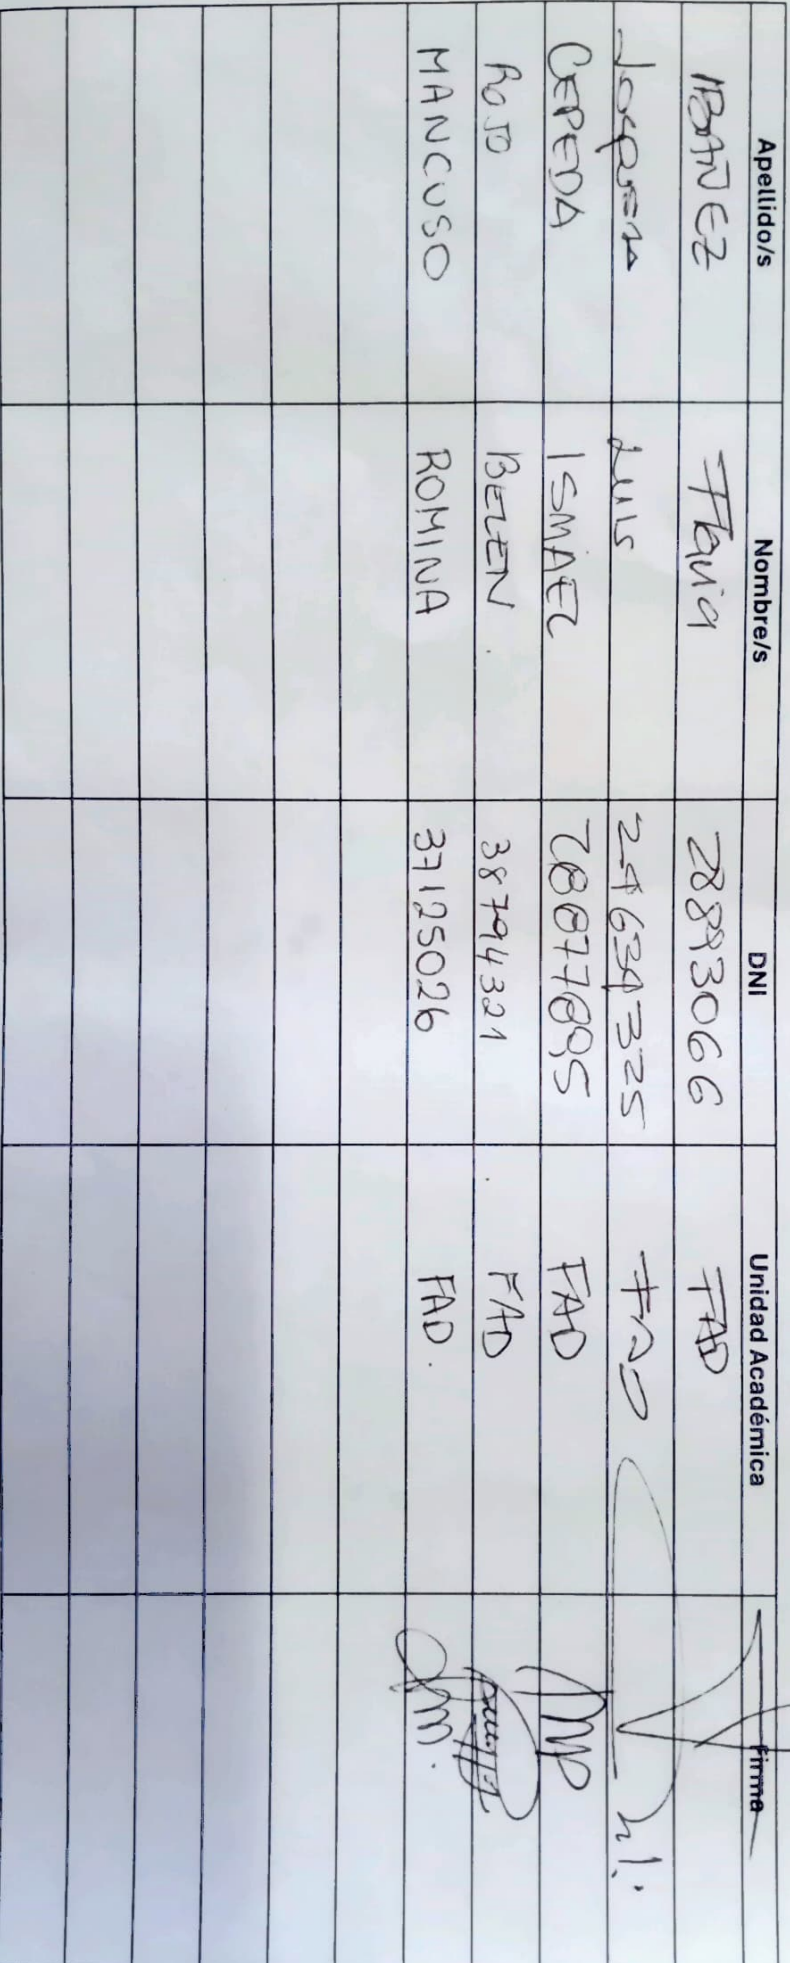 Apellido/s Nombre/s DNI Unidad Académica Firma
IBAÑEZ Flavia 28893066 FAD
Luis FAD
CEPEDA ISMAEL FAD
ROJO BELEN 38794321 FAD
MANCUSO ROMINA 37125026 FAD.